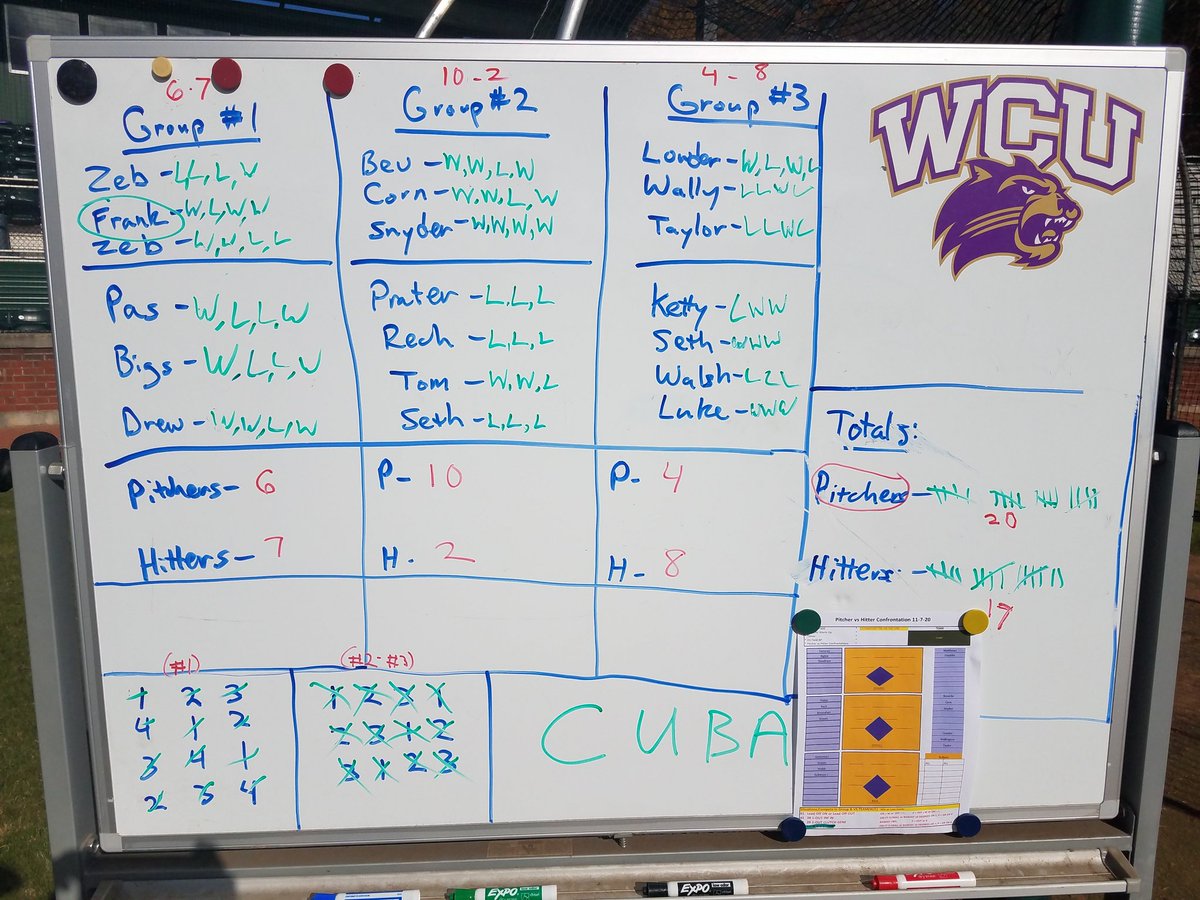 6-7
Group #1
Zeb - L, L, W
Frank - W, L, W, W
Zeb - W, W, L, L
Pas - W, L, L, W
Bigs - W, L, L, W
Drew - W, W, L, W
Pitchers - 6
Hitters - 7
10-2
Group #2
Bev - W, W, L, W
Corn - W, W, L, W
Snyder - W, W, W, W
Prater - L, L, L
Rech - L, L, L
Tom - W, W, L
Seth - L, L, L
P- 10
H- 2
4-8
Group #3
Lowder - W, L, W, L
Wally - L L W L
Taylor - L L W L
Ketty - L W W
Seth - W W W
Walsh - L L L
Luke - W W W
P- 4
H- 8
WCU
Totals:
Pitchers -
20
Hitters -
17
(#1)
1 2 3
4 1 2
3 4 1
2 3 4
(#2-#3)
1 2 3 1
2 3 1 2
3 1 2 3
CUBA
Pitcher vs Hitter Confrontation 11-7-20
EXPO
EXPO